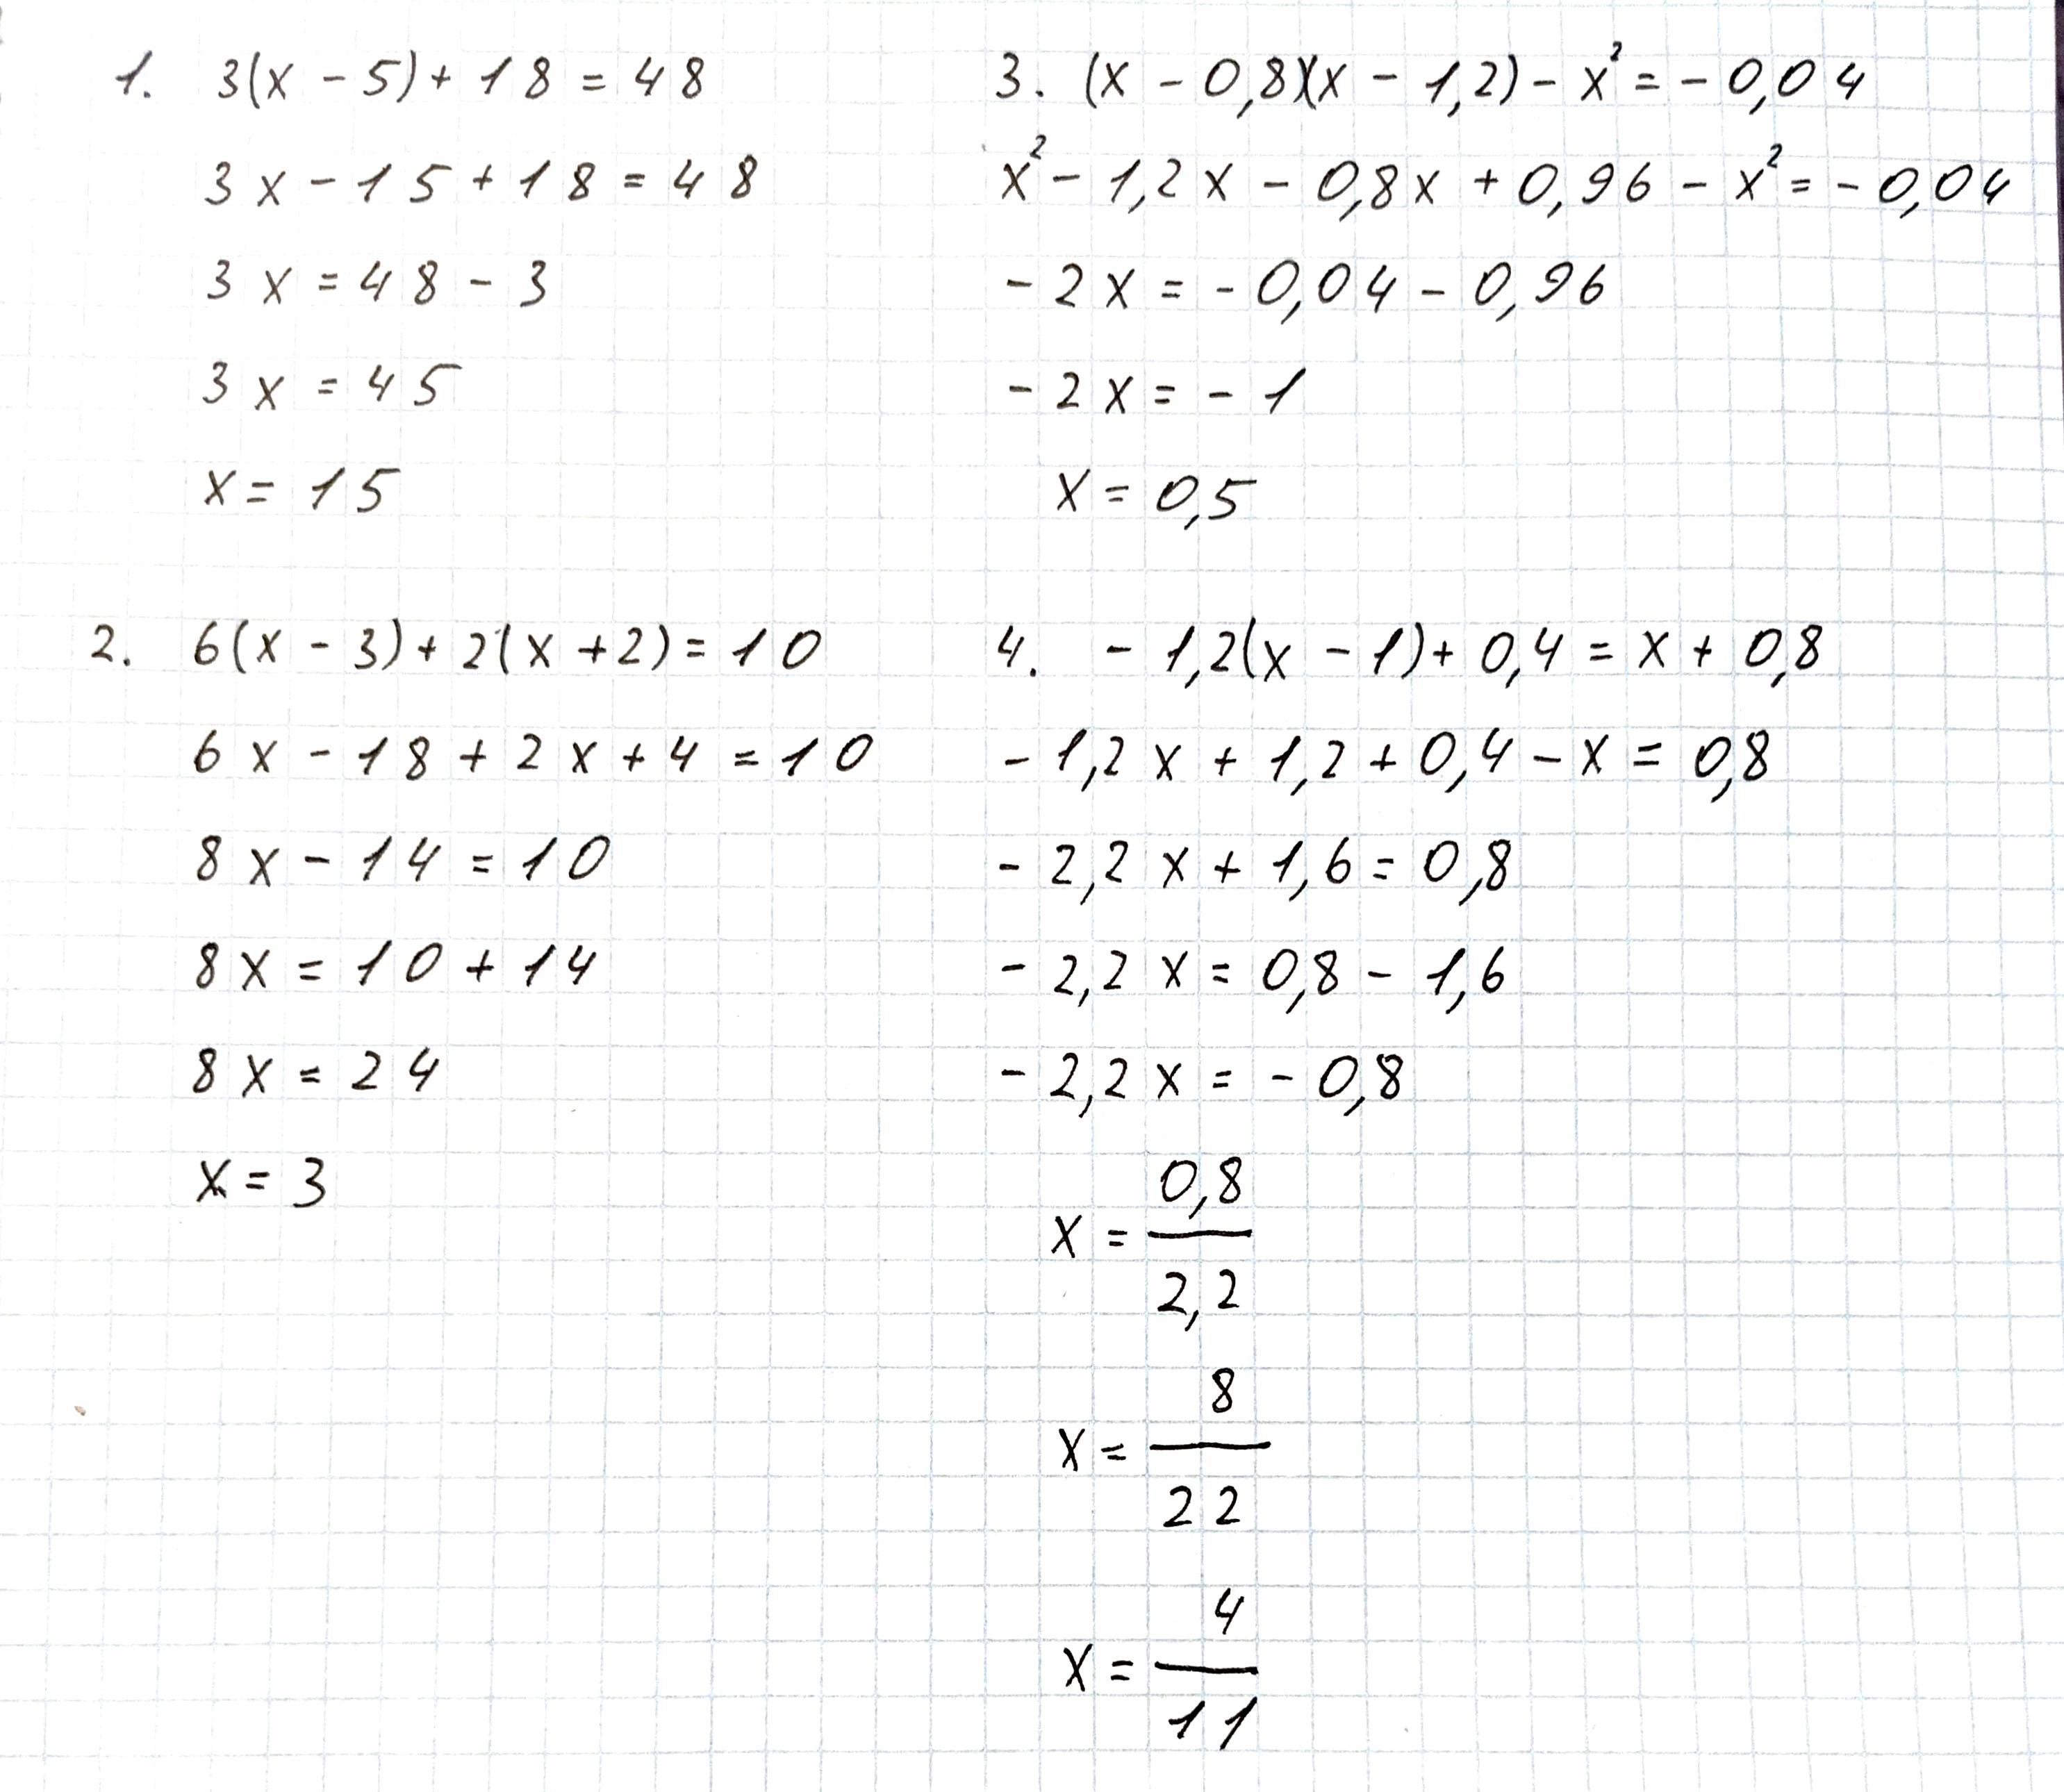 1. 3(x - 5) + 18 = 48
3x - 15 + 18 = 48
3x = 48 - 3
3x = 45
x = 15
2. 6(x - 3) + 2(x + 2) = 10
6x - 18 + 2x + 4 = 10
8x - 14 = 10
8x = 10 + 14
8x = 24
x = 3
3. (x - 0,8)(x - 1,2) - x² = - 0,04
x² - 1,2x - 0,8x + 0,96 - x² = - 0,04
- 2x = - 0,04 - 0,96
- 2x = - 1
x = 0,5
4. - 1,2(x - 1) + 0,4 = x + 0,8
- 1,2x + 1,2 + 0,4 - x = 0,8
- 2,2x + 1,6 = 0,8
- 2,2x = 0,8 - 1,6
- 2,2x = - 0,8
x = 0,8/2,2
x = 8/22
x = 4/11